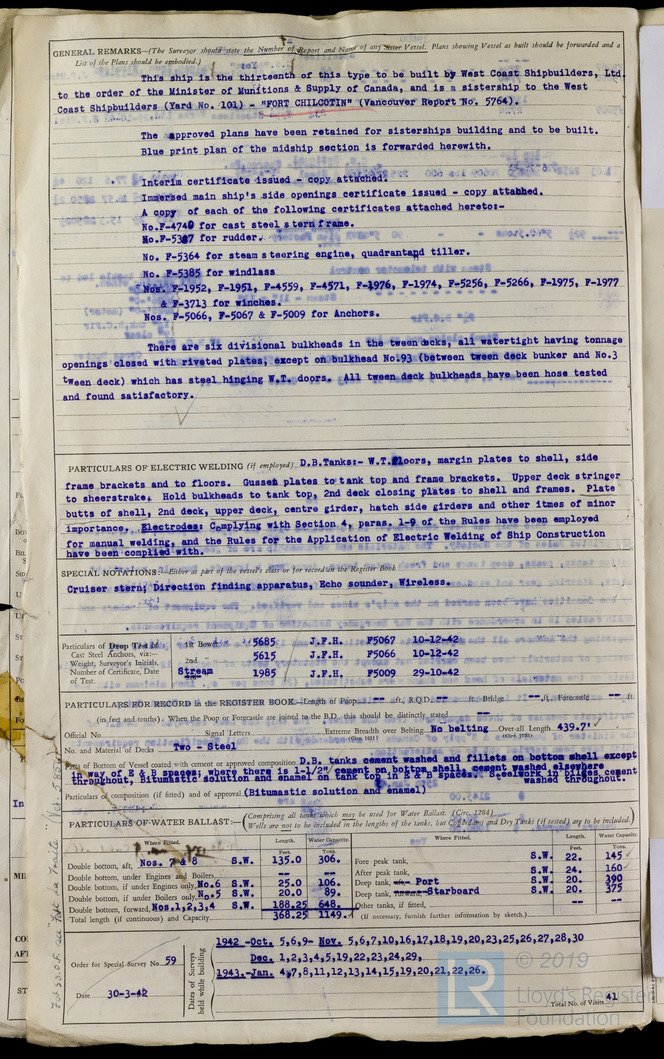 GENERAL REMARKS—(The Surveyor should state the Number of Report and Name of any Sister Vessel. Plans showing Vessel as built should be forwarded and a
List of the Plans should be embodied.)
This ship is the thirteenth of this type to be built by West Coast Shipbuilders, Ltd.
to the order of the Minister of Munitions & Supply of Canada, and is a sistership to the West
Coast Shipbuilders (Yard No. 101) - "FORT CHILCOTIN" (Vancouver Report No. 5764).
The approved plans have been retained for sisterships building and to be built.
Blue print plan of the midship section is forwarded herewith.
Interim certificate issued - copy attached.
Immersed main ship's side openings certificate issued - copy attached.
A copy of each of the following certificates attached hereto:-
No.F-4740 for cast steel sternframe.
No.F-5387 for rudder.
No. F-5364 for steam steering engine, quadrant and tiller.
No. F-5385 for windlass
Nos. F-1952, F-1951, F-4559, F-4571, F-1976, F-1974, F-5256, F-5266, F-1975, F-1977
& F-3713 for winches.
Nos. F-5066, F-5067 & F-5009 for Anchors.
There are six divisional bulkheads in the tween decks, all watertight having tonnage
openings closed with riveted plates, except on bulkhead No.93 (between tween deck bunker and No.3
tween deck) which has steel hinging W.T. doors. All tween deck bulkheads have been hose tested
and found satisfactory.
PARTICULARS OF ELECTRIC WELDING (if employed) D.B.Tanks:- W.T.floors, margin plates to shell, side
frame brackets and to floors. Gusset plates to tank top and frame brackets. Upper deck stringer
to sheerstrake. Hold bulkheads to tank top, 2nd deck closing plates to shell and frames. Plate
butts of shell, 2nd deck, upper deck, centre girder, hatch side girders and other itmes of minor
importance. Electrodes: Complying with Section 4, paras. 1-9 of the Rules have been employed
for manual welding, and the Rules for the Application of Electric Welding of Ship Construction
have been complied with.
SPECIAL NOTATIONS:—Either as part of the vessel's class or for record in the Register Book
Cruiser stern; Direction finding apparatus, Echo sounder, Wireless.
Particulars of Drop Test of 1st Bower 5685 J.F.H. F5067 10-12-42
Cast Steel Anchors, viz:— 2nd " 5615 J.F.H. F5066 10-12-42
Weight, Surveyor's Initials,
Number of Certificate, Date Stream 1985 J.F.H. F5009 29-10-42
of Test.
PARTICULARS FOR RECORD in the REGISTER BOOK.—Length of Poop -- ft., R.Q.D. -- ft., Bridge -- ft., Forecastle -- ft.
(in feet and tenths). When the Poop or Forecastle are joined to the B.D., this should be distinctly stated --
Official No. Signal Letters Extreme Breadth over Belting No belting Over-all Length 439.7'
No. and Material of Decks Two - Steel
Parts of Bottom of Vessel coated with cement or approved composition D.B. tanks cement washed and fillets on bottom shell except
in way of E & B spaces; where there is 1-1/2" cement on bottom shell, cement washed elsewhere
throughout, Bitumastic solution and enamel on tank top in E & B spaces. Steelwork in bilges cement
washed throughout.
Particulars of composition (if fitted) and of approval (Bitumastic solution and enamel)
PARTICULARS OF WATER BALLAST:— (Comprising all tanks which may be used for Water Ballast. (Circ. 1284)
Wells are not to be included in the lengths of the tanks, but Cofferdams and Dry Tanks (if tested) are to be included.)
Where Fitted. Length. Water Capacity. Where Fitted. Length. Water Capacity.
Feet. Tons. Feet. Tons.
Double bottom, aft, Nos. 7 & 8 S.W. 135.0 306. Fore peak tank, S.W. 22. 145
Double bottom, under Engines and Boilers, -- -- After peak tank, S.W. 24. 160
Double bottom, if under Engines only, No.6 S.W. 25.0 106. Deep tank, Port S.W. 20. 390
Double bottom, if under Boilers only, No.5 S.W. 20.0 89. Deep tank, Starboard S.W. 20. 375
Double bottom, forward, Nos.1,2,3,4 S.W. 188.25 648. Other tanks, if fitted, -- --
Total length (if continuous) and Capacity 368.25 1149. (If necessary, furnish further information by sketch.)
Order for Special Survey No. 59
Date 30-3-42
Dates of Surveys held while building
1942 -Oct. 5,6,9- Nov. 5,6,7,10,16,17,18,19,20,23,25,26,27,28,30
Dec. 1,2,3,4,5,19,22,23,24,29,
1943.-Jan. 4,7,8,11,12,13,14,15,19,20,21,22,26.
Total No. of Visits 41
© 2019
LR
Lloyd's Register
Foundation